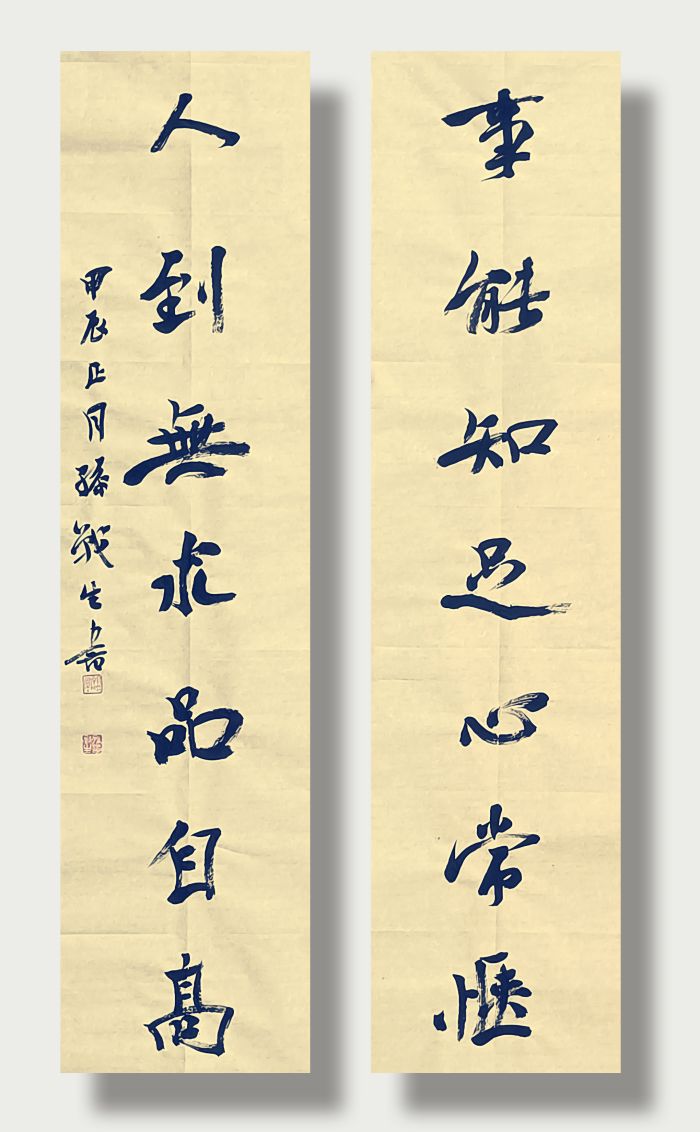 事能知足心常愜
人到無求品自高
甲辰正月孫戰生書